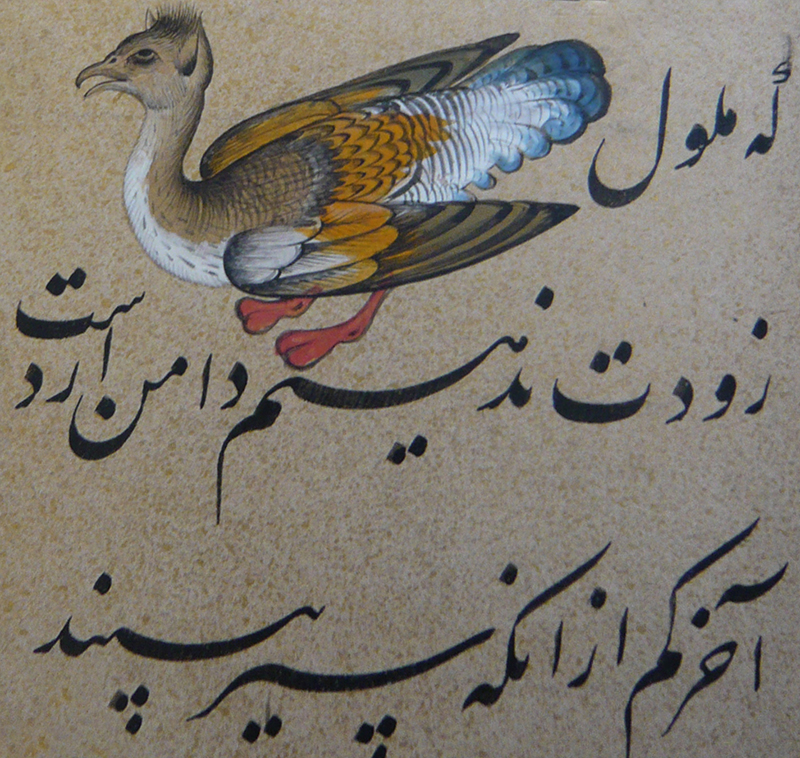 که ملول
زودت ندهیم دامن از دست
آخر کم از آنکه سیر بینند